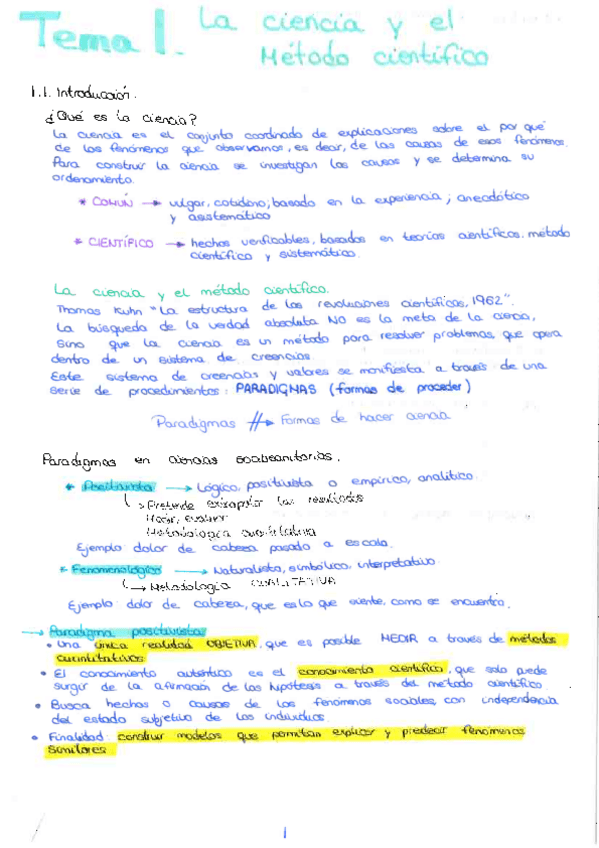 Tema 1. La ciencia y el
Método científico
1.1. Introducción.
¿Qué es la ciencia?
La ciencia es el conjunto coordinado de explicaciones sobre el por qué
de los fenómenos que observamos, es decir, de las causas de esos fenómenos.
Para construir la ciencia se investigan las causas y se determina su
ordenamiento.
* COMÚN → vulgar, cotidiano; basado en la experiencia; anecdótico
y asistemático
* CIENTÍFICO → hechos verificables, basados en teorías científicas, método
científico y sistemático.
La ciencia y el método científico.
Thomas Kuhn "La estructura de las revoluciones científicas, 1962".
La búsqueda de la verdad absoluta NO es la meta de la ciencia,
sino que la ciencia es un método para resolver problemas que opera
dentro de un sistema de creencias.
Este sistema de creencias y valores se manifiesta a través de una
serie de procedimientos: PARADIGMAS (formas de proceder)
Paradigmas → Formas de hacer ciencia
Paradigmas en ciencias sociosanitarias.
* Positivista → Lógico, positivista o empírico, analítico.
↳ Pretende extrapolar los resultados
Medir, evaluar
Metodología cuantitativa
Ejemplo dolor de cabeza pasado a escala.
* Fenomenológico → Naturalista, simbólico, interpretativo
↳ Metodología CUALITATIVA
Ejemplo: dolor de cabeza, que es lo que siente, como se encuentra.
→ Paradigma positivista:
• Una única realidad OBJETIVA, que es posible MEDIR a través de métodos
cuantitativos
• El conocimiento auténtico es el conocimiento científico, que solo puede
surgir de la afirmación de las hipótesis a través del método científico
• Busca hechos o causas de los fenómenos sociales, con independencia
del estado subjetivo de los individuos.
• Finalidad: construir modelos que permitan explicar y predecir fenómenos
similares.
1